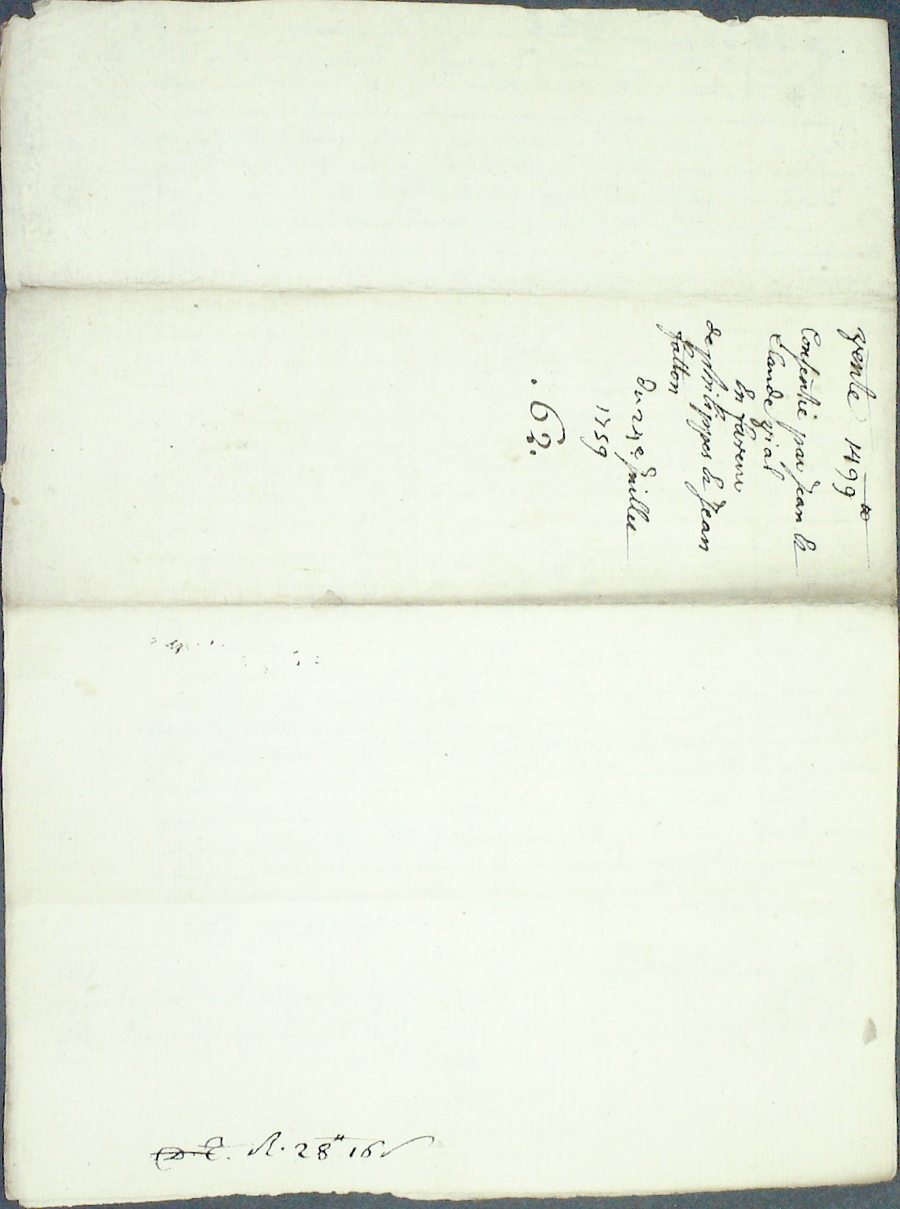 Vente 1499 tt
Consentie par Jean &
Claude Vial
En faveur
de philippes & Jean
fatton
du 24e. Juillet
1759
. 62.
R. 28" 16 s